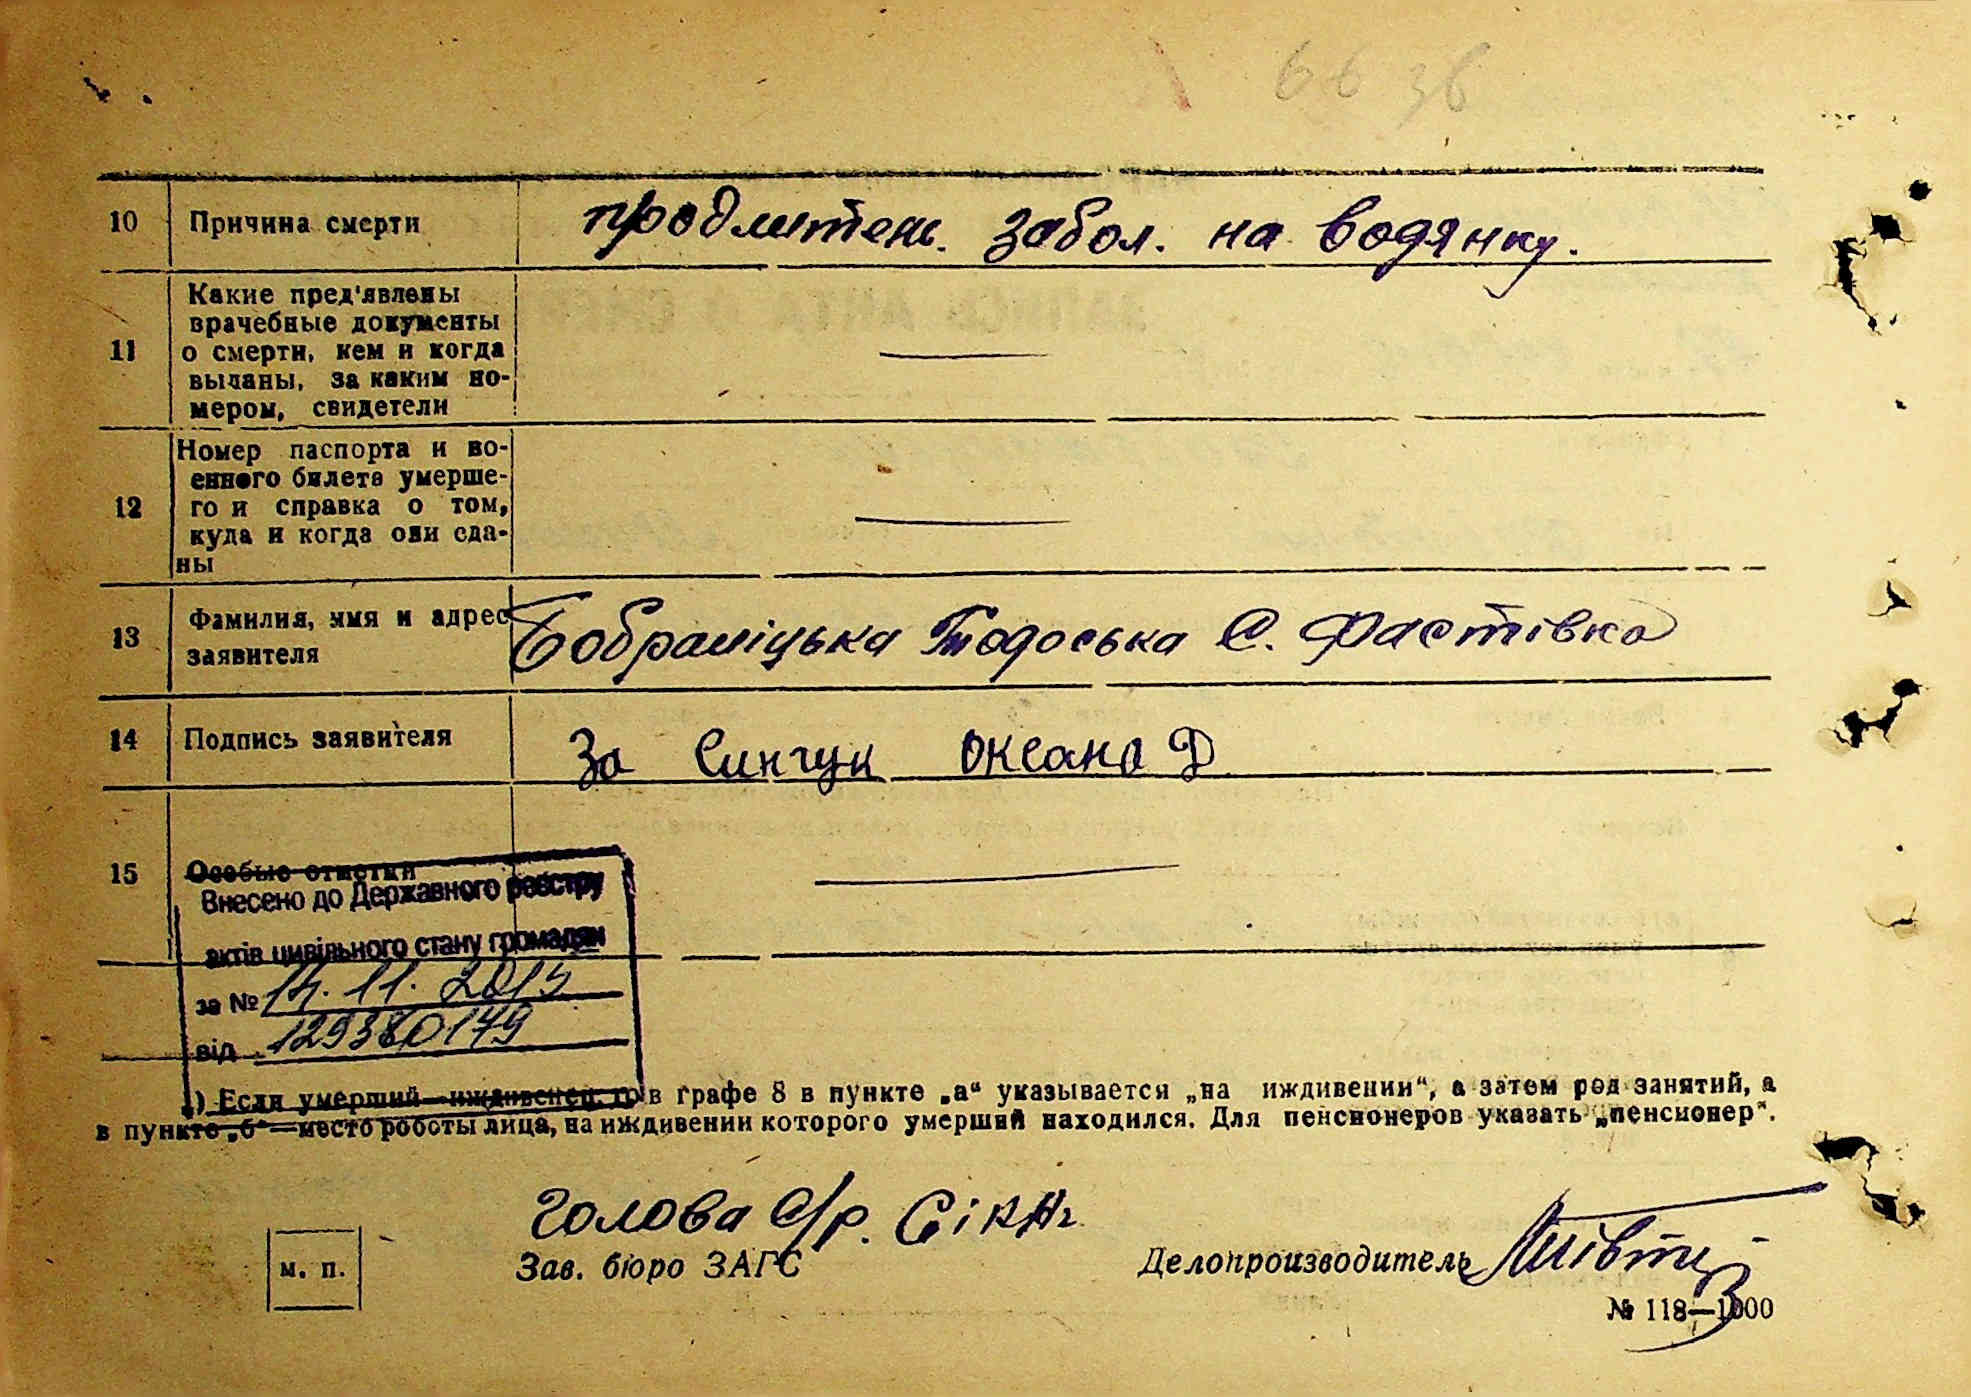 66 36
10 Причина смерти продлитень. забол. на водянку.
11 Какие пред'явлены
врачебные документы
о смерти, кем и когда
выданы, за каким но-
мером, свидетели
12 Номер паспорта и во-
енного билета умерше-
го и справка о том,
куда и когда они сда-
ны
13 Фамилия, имя и адрес
заявителя
Тодоська С. Фастівка
14 Подпись заявителя За Синчук Оксана Д
15 Особые отметки
Внесено до Державного реєстру
актів цивільного стану громадян
за № 14.11.2015
від 129380179
) Если умерший—иждивенец, то в графе 8 в пункте „а“ указывается „на иждивении“, а затем род занятий, а
в пункте „б“—место роботы лица, на иждивении которого умерший находился. Для пенсионеров указать „пенсионер“.
Голова с/р.
м. п. Зав. бюро ЗАГС Делопроизводитель
№ 118—1000